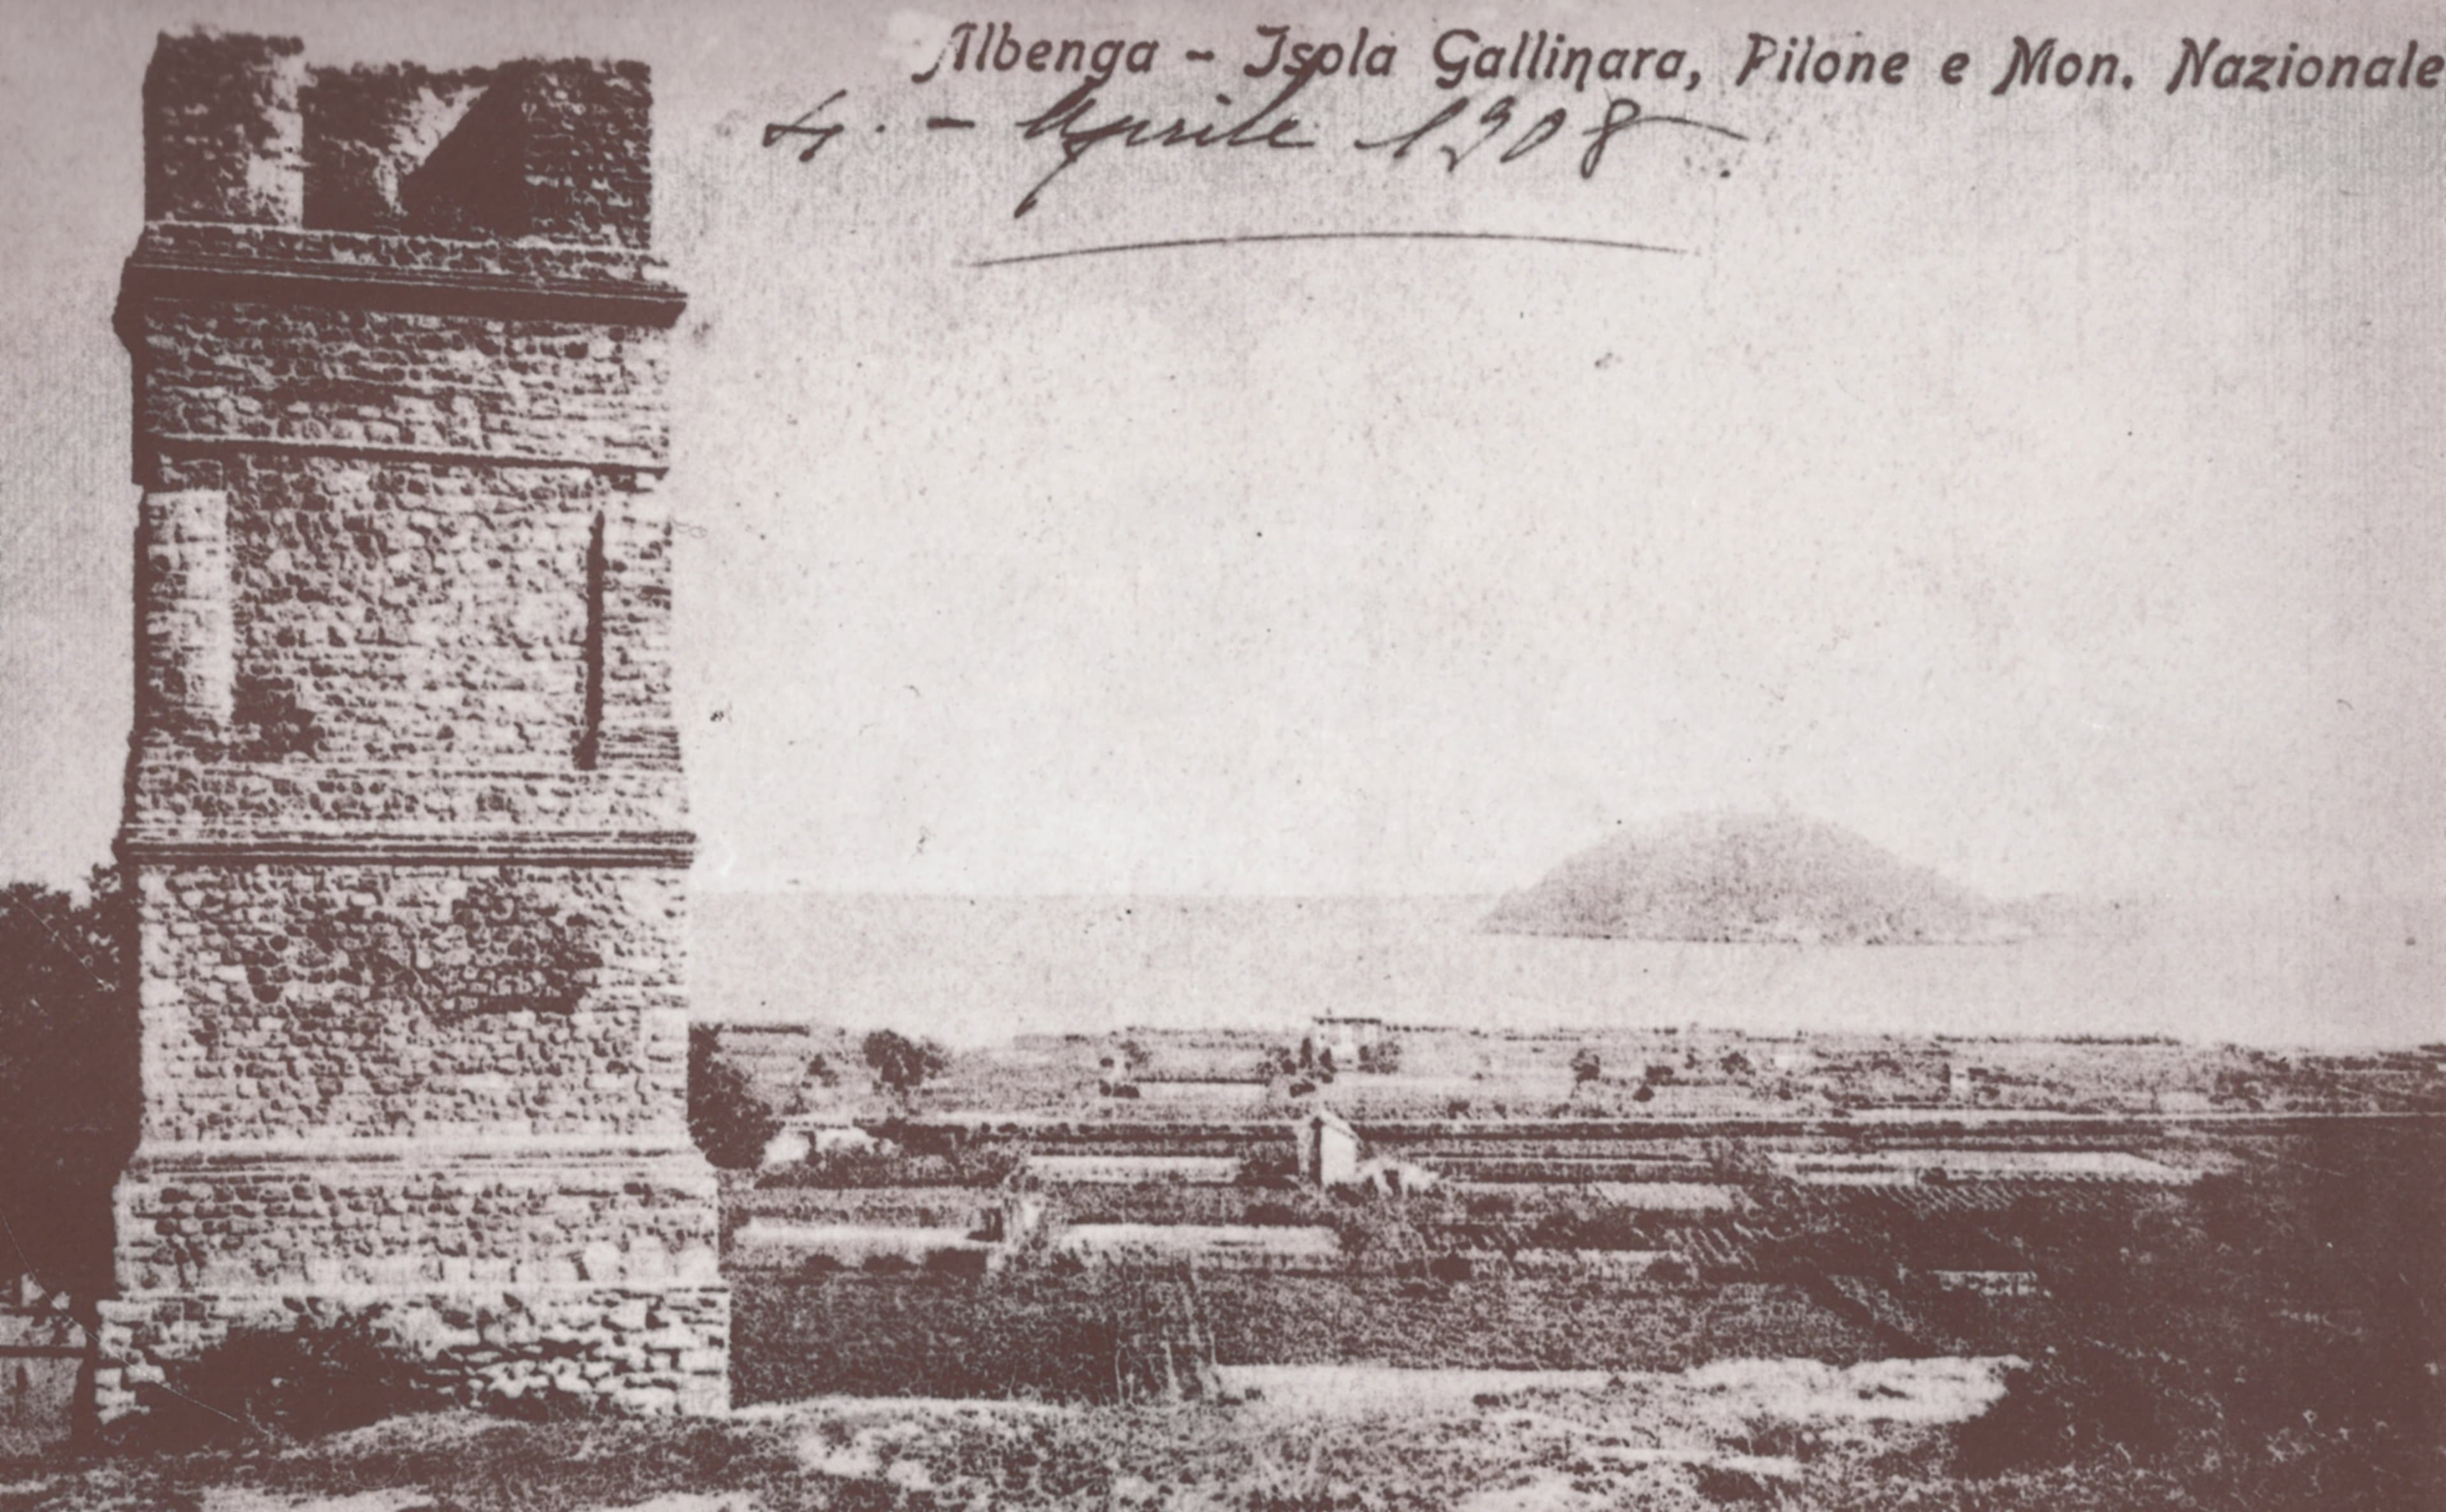 Albenga - Isola Gallinara, Pilone e Mon. Nazionale
4. - Aprile 1908.